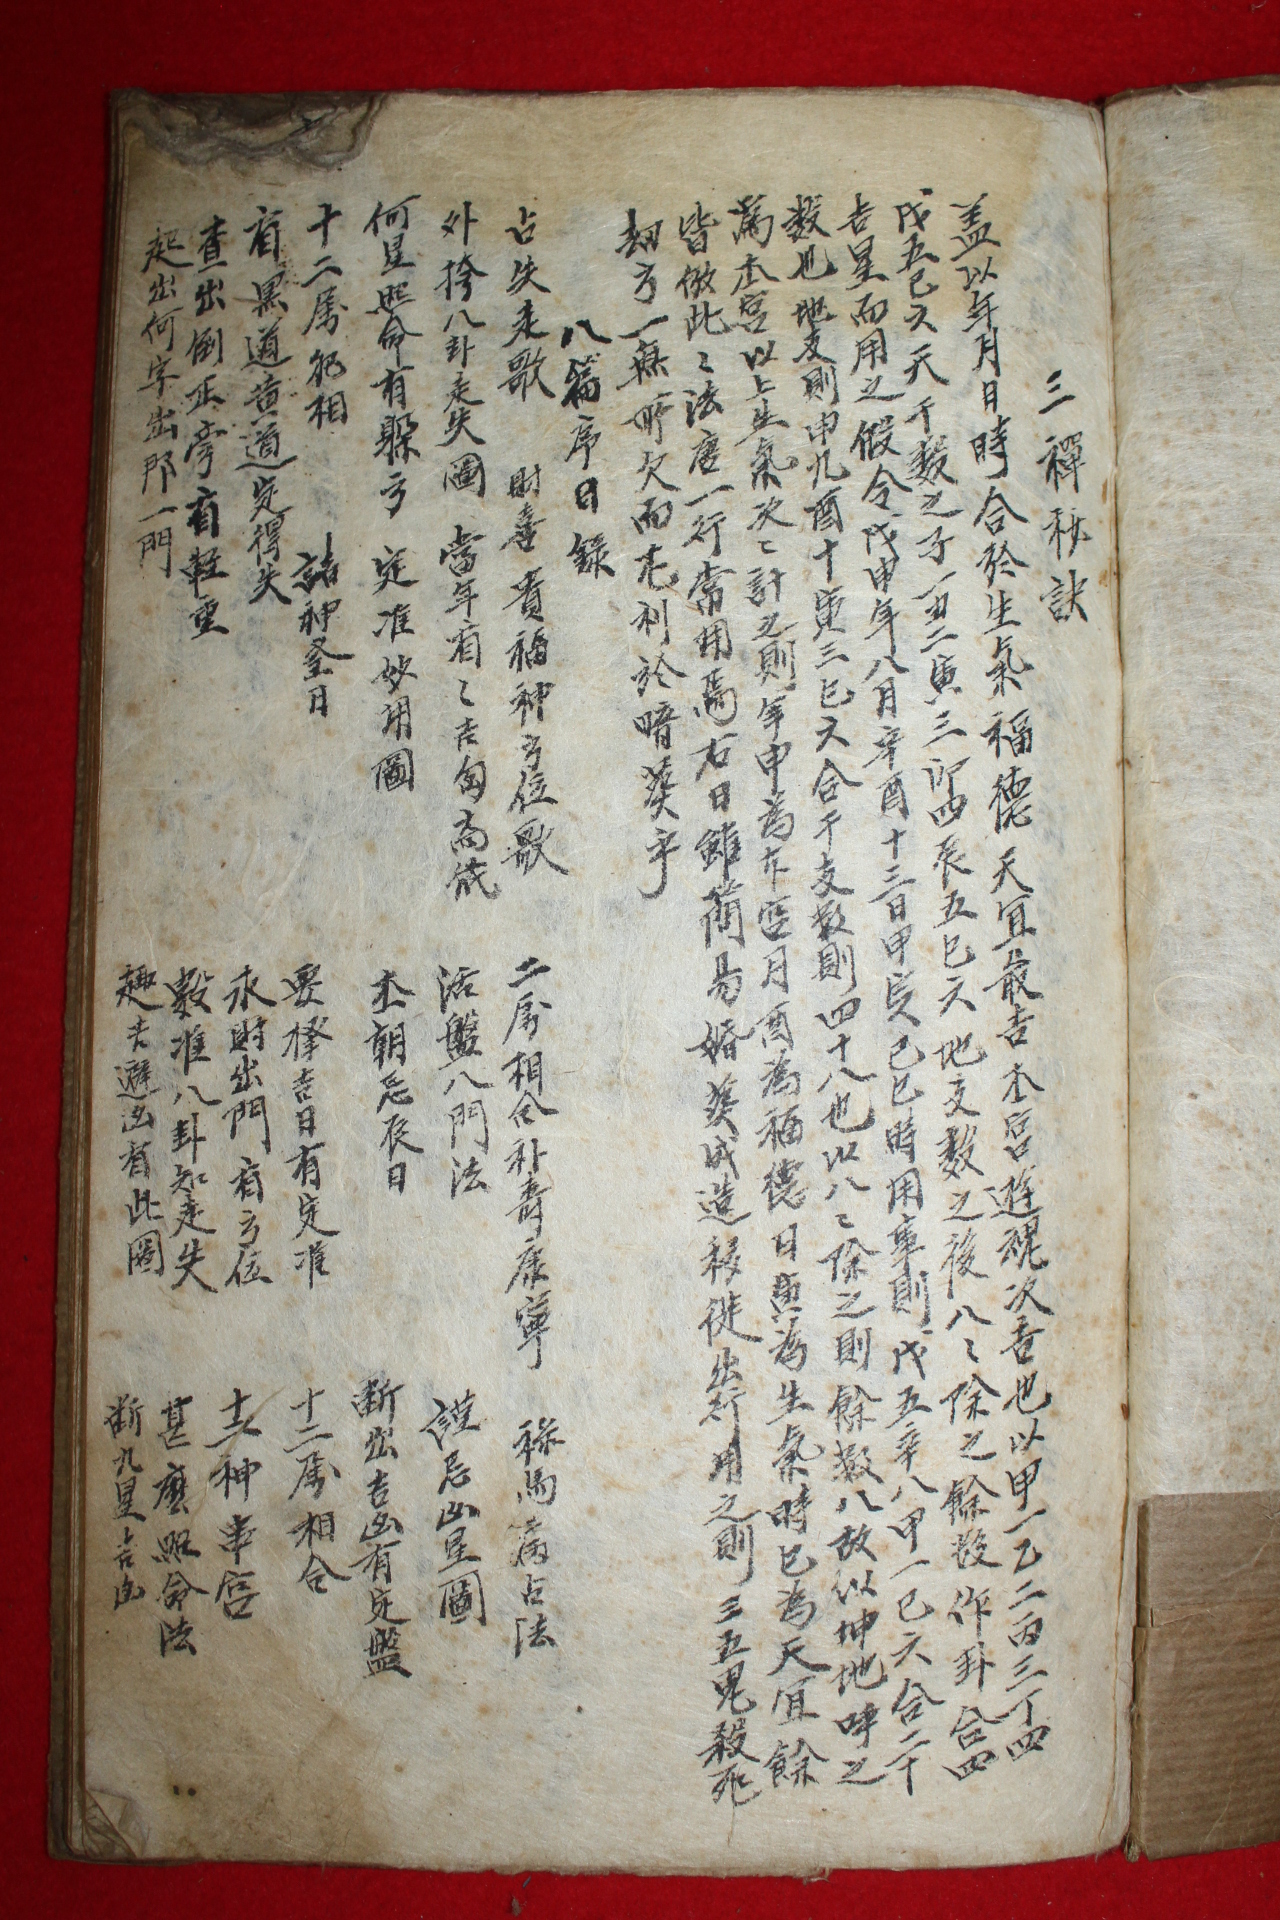 三禪秘訣
盖以年月日時合於生氣福德天宜最吉本宮遊魂次吉也以甲一乙二丙三丁四
戊五己六天干數之子一丑二寅三卯四辰五巳六地支數之後八〻除之餘數作卦合四
吉星而用之假令戊申年八月辛酉十三日甲寅己巳時用事則戊五辛八甲一己六合二十
數也地支則申九酉十寅三巳六合干支數則四十八也以八〻除之則餘數八故以坤地呼之
爲本宮以上生氣次〻計之則年申爲本宮月酉爲福德日寅爲生氣時巳爲天宜餘
皆倣此〻法唐一行常用焉右日雖簡易婚葬成造移徙出行用之則三五鬼殺死
刼方一無所欠而尤利於暗葬乎
八篇序目錄
占失走歌 財喜貴福神方位歌 二屬相合補壽康寧 祿馬病占法
外挎八卦走失圖 當年有〻吉㐫高低 活盤八門法 謹忌凶星圖
何星照命有躱方 定准妙用圖 本朝忌辰日 断出吉凶有定盤
十二屬犯相 諸神登日 要擇吉日有定准 十二屬相合
有黑道黃道定得失 求財出門有方位 十二神串宮
查出倒正字有輕重 數准八卦知走失 甚麽照命法
起出何字出那一門 趣吉避凶看此圖 断九星吉凶